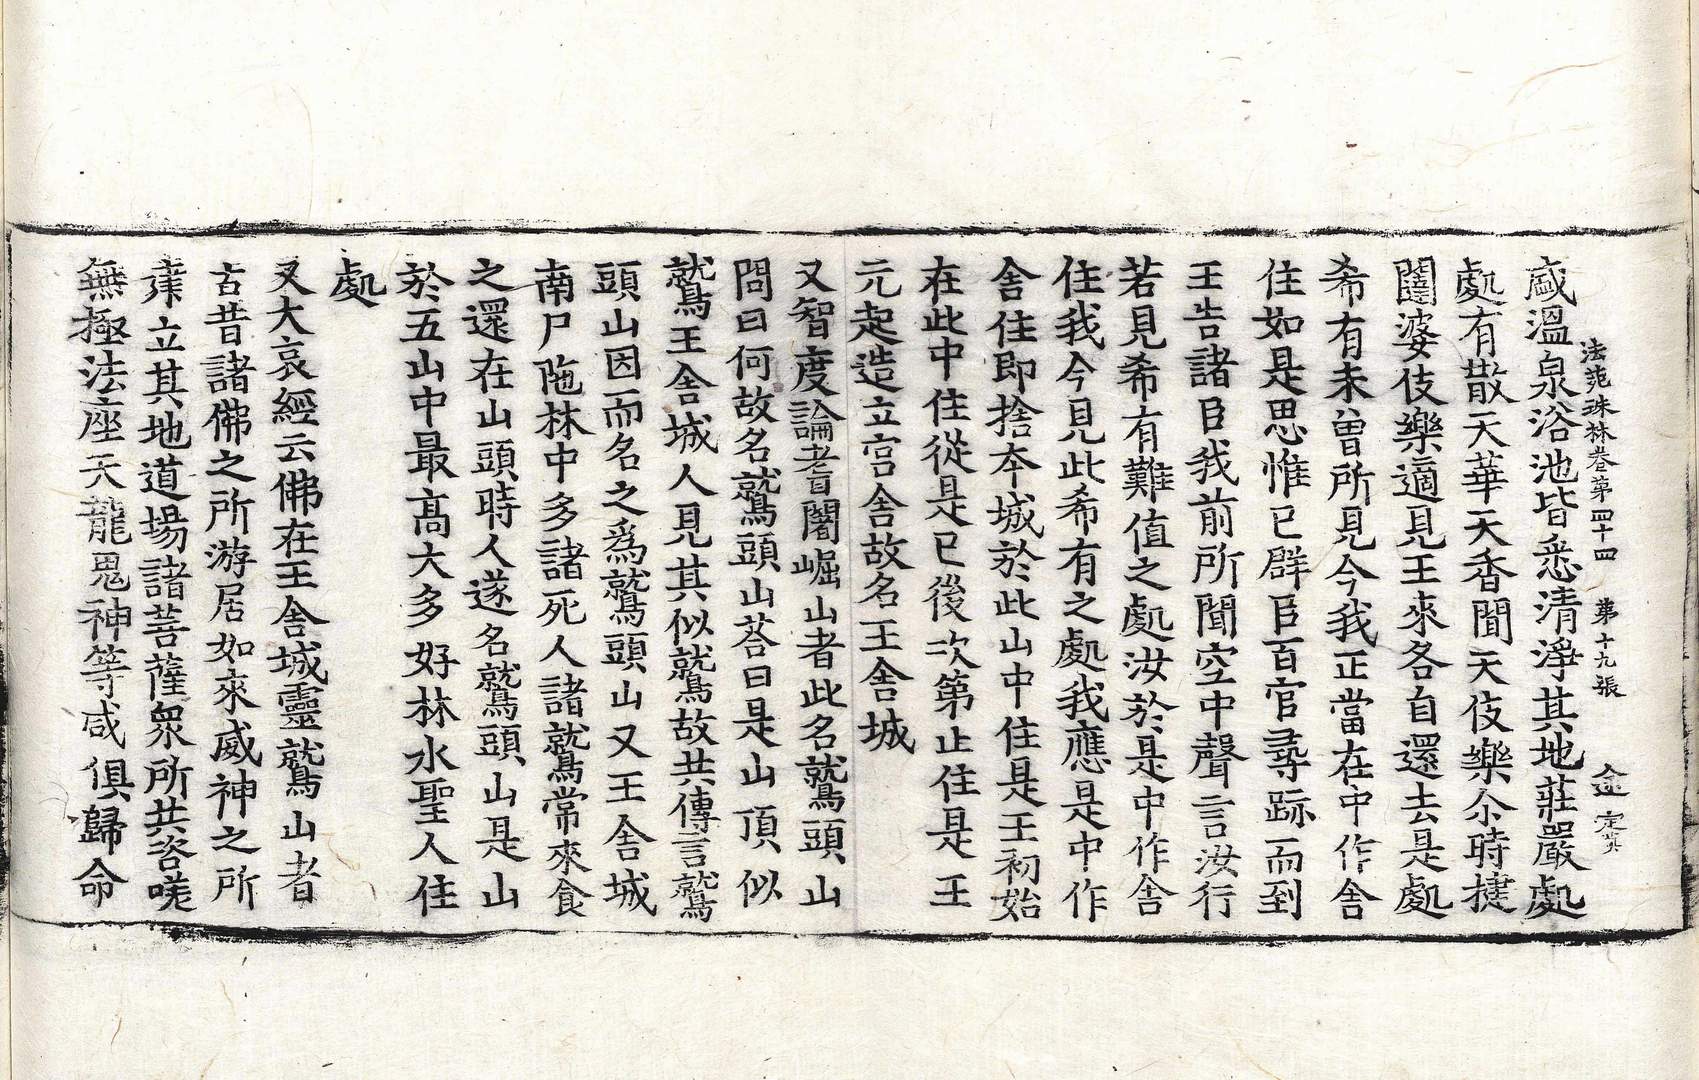 法苑珠林卷第四十四 第十九張 金 定其
咸溫泉浴池皆悉清淨其地莊嚴處
處有散天華天香聞天伎樂尒時揵
闥婆伎樂適見王來各自還去是處
希有未曾所見今我正當在中作舍
住如是思惟已群臣百官尋跡而到
王告諸臣我前所聞空中聲言汝行
若見希有難值之處汝於是中作舍
住我今見此希有之處我應是中作
舍住即捨本城於此山中住是王初始
在此中住從是已後次第止住是王
元起造立宮舍故名王舍城
又智度論耆闍崛山者此名鷲頭山
問曰何故名鷲頭山荅曰是山頂似
鷲王舍城人見其似鷲故共傳言鷲
頭山因而名之爲鷲頭山又王舍城
南尸陁林中多諸死人諸鷲常來食
之還在山頭時人遂名鷲頭山是山
於五山中最髙大多好林水聖人住
處
又大哀經云佛在王舍城靈鷲山者
古昔諸佛之所游居如來威神之所
建立其地道場諸菩薩衆所共咨嗟
無極法座天龍鬼神等咸俱歸命